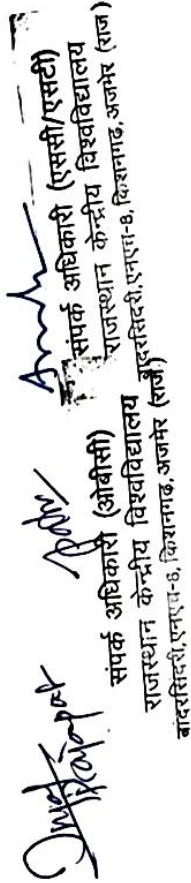 संपर्क अधिकारी (ओबीसी)
राजस्थान केन्द्रीय विश्वविद्यालय
बांदरसिंदरी, एनएच-8, किशनगढ़, अजमेर (राज.)
संपर्क अधिकारी (एससी/एसटी)
राजस्थान केन्द्रीय विश्वविद्यालय
बांदरसिंदरी, एनएच-8, किशनगढ़, अजमेर (राज)